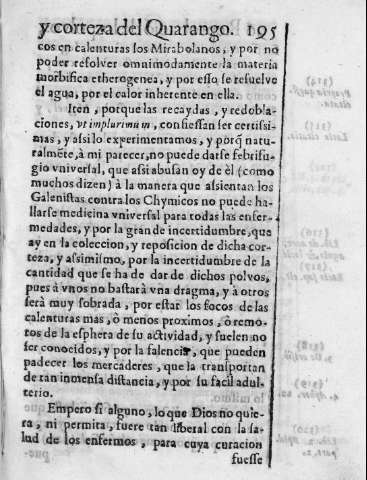 y corteza del Quarango. 195
cos en calenturas los Mirabolanos, y por no
poder resolver omnimodamente la materia
morbifica etherogenea, y por esso se resuelve
el agua, por el calor inherente en ella.
Iten, porque las recaydas, y redobla-
ciones, vt implurimum, confiessan ser certissi-
mas, y assi lo experimentamos, y porq̃ natu-
ralmẽte, à mi parecer, no puede darse febrifu-
gio vniversal, que assi abusan oy de èl (como
muchos dizen) à la manera que assientan los
Galenistas contra los Chymicos no puede ha-
llarse medicina vniversal para todas las enfer-
medades, y por la gran de incertidumbre, que
ay en la coleccion, y reposicion de dicha cor-
teza, y assimismo, por la incertidumbre de la
cantidad que se ha de dar de dichos polvos,
pues à vnos no bastarà vna dragma, y à otros
serà muy sobrada, por estar los focos de las
calenturas mas, ò menos proximos, ò remo-
tos de la esphera de su actividad, y suelen no
ser conocidos, y por la falencia, que pueden
padecer los mercaderes, que la transportan
de tan inmensa distancia, y por su facil adul-
terio.
Empero si alguno, lo que Dios no quie-
ra, ni permita, fuere tan liberal con la sa-
lud de los enfermos, para cuya curacion
fuesse